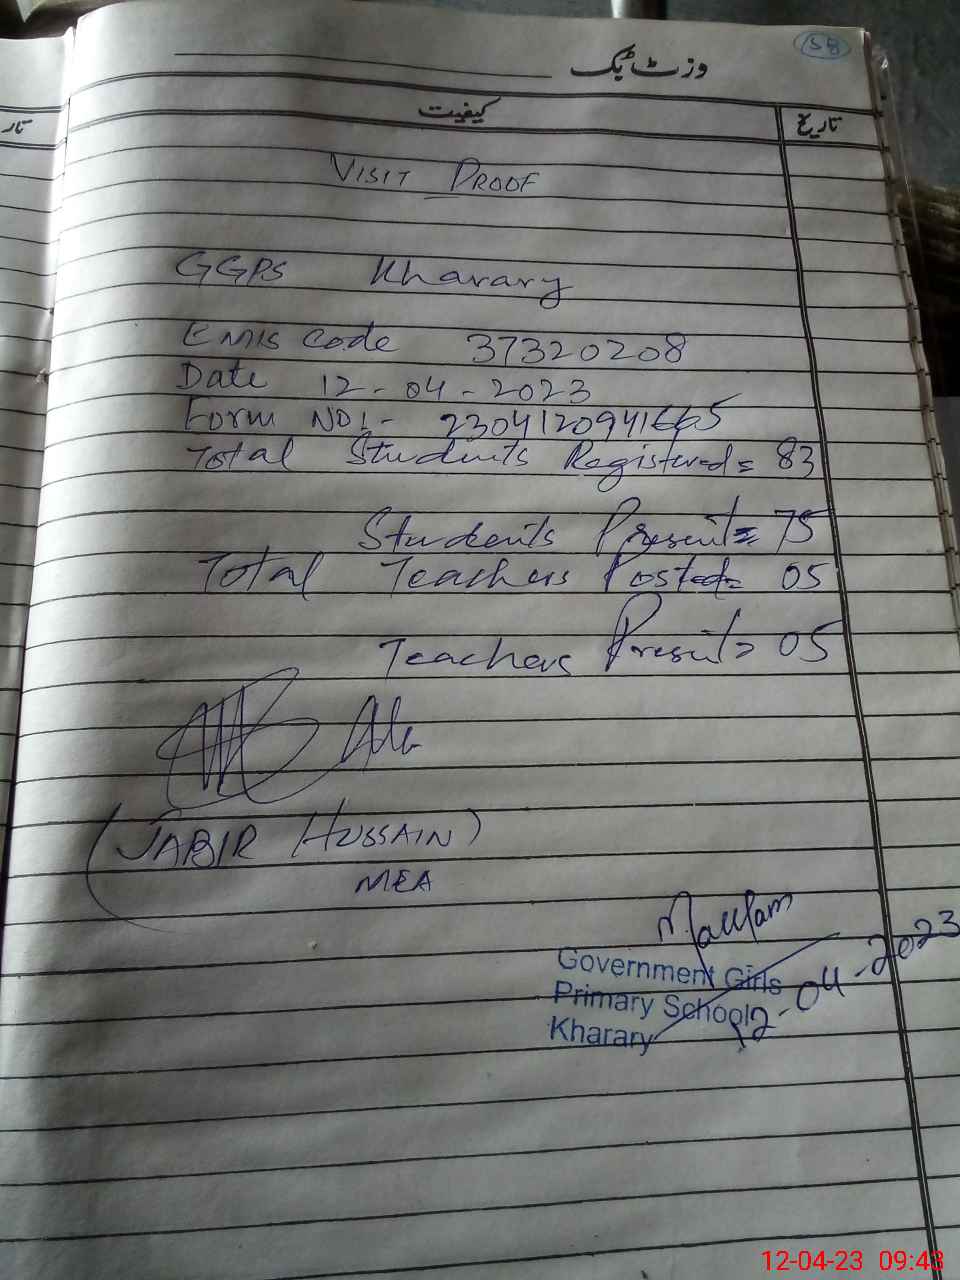 58
وزٹ بک
کیفیت
تاریخ
تار
VISIT PROOF
GGPS Kharary
EMIS Code 37320208
Date 12-04-2023
Form NO:- 2304120941665
Total Students Registered= 83
Students Present= 75
Total Teachers Posted= 05
Teachers Present= 05
(JABIR HUSSAIN)
MEA
Government Girls
Primary School
Kharary
12-04-2023
12-04-23 09:43